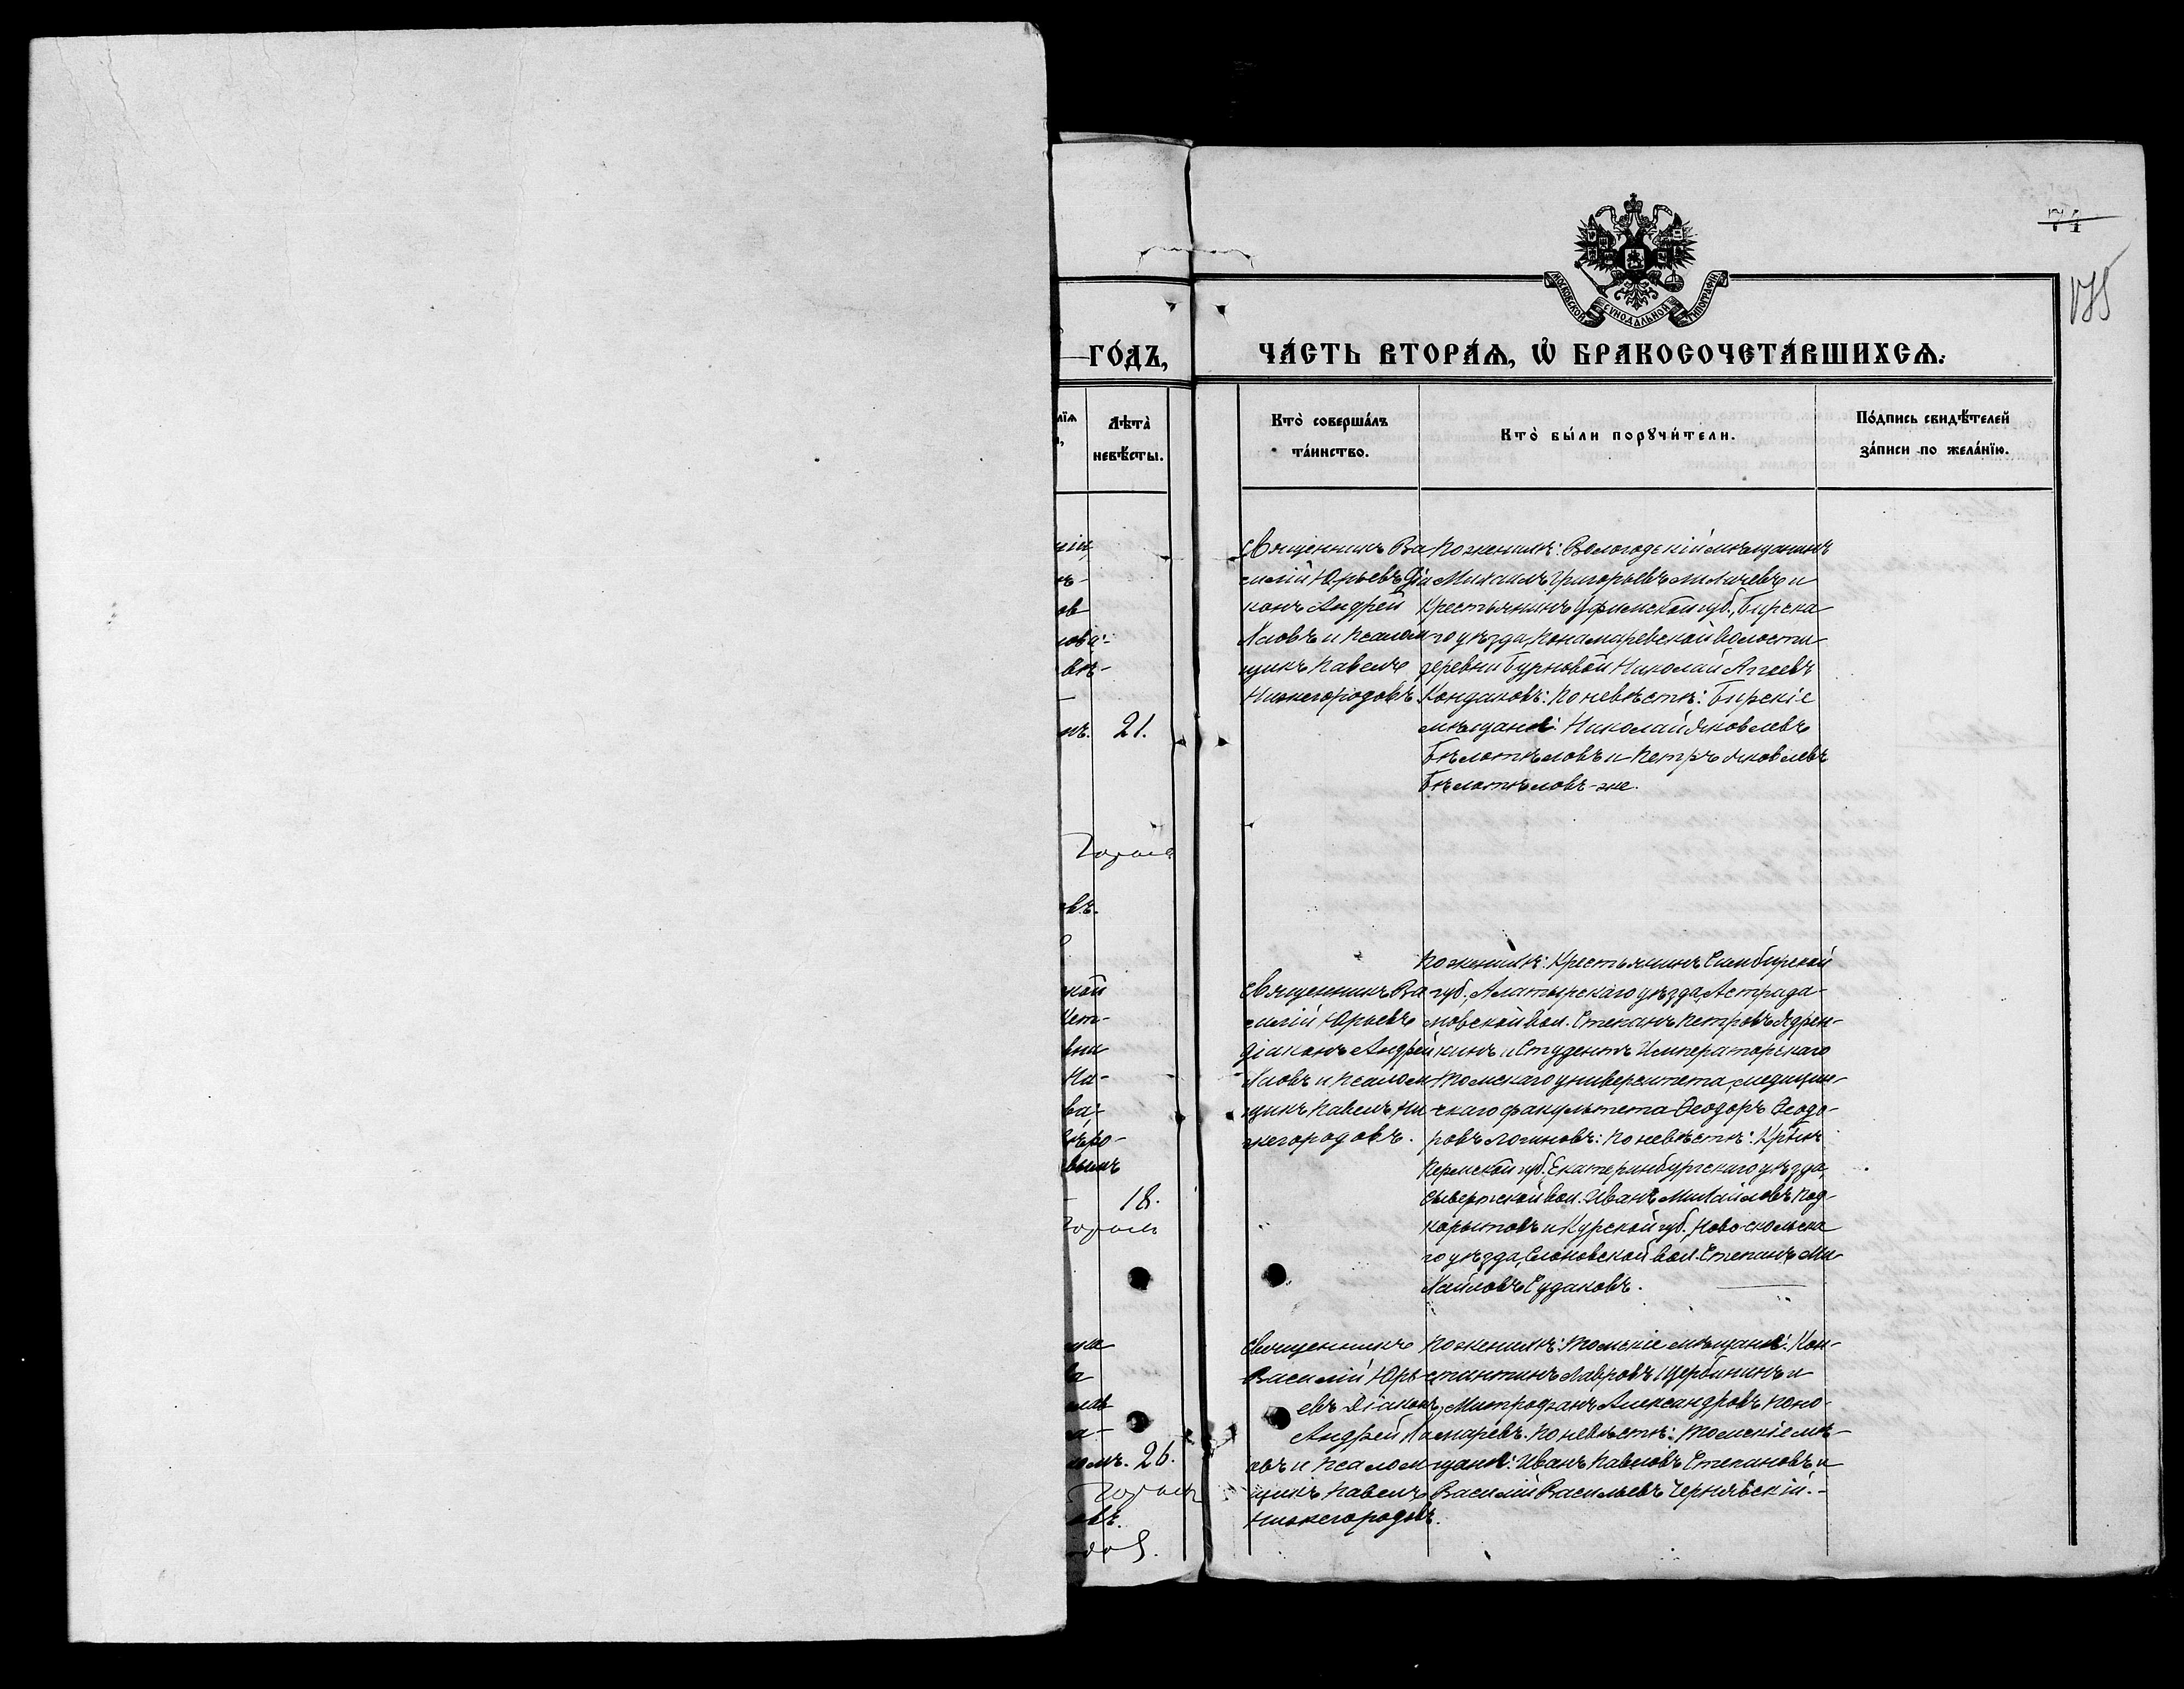 74
175
МОСКОВСКОЙ СѴНОДАЛЬНОЙ ТИПОГРАФІИ
ГО́ДЪ,
ЧА́СТЬ ВТОРА́Ѧ, Ѽ БРАКОСОЧЕТА́ВШИХСѦ.
Лѣта̀
невѣ́сты.
Кто̀ соверша́лъ
та́инство.
Кто̀ бы́ли порꙋчи́тели.
По́дпись свидѣ́телей
за́писи по жела́нїю.
21.
18.
26.
Священникъ Ва
силій Юрьевъ Діа
конъ Андрей
Хловъ и псалом
щикъ Павелъ
Нижегородовъ.
По женихѣ: Вологодскій мѣщанинъ
Михаилъ Григорьевъ и
Крестьянинъ Уфимской губ., Бирска
го уѣзда, Понамаревской волости
деревни Бурновой Николай Аггеевъ
Кондаковъ: По невѣстѣ: Бирскіе
мѣщане: Николай Яковлевъ
Бѣлотѣловъ и Петръ Яковлевъ
Бѣлотѣловъ-же.
Священникъ Ва
силій Юрьевъ
Діаконъ Андрей
Хловъ и псалом
щикъ Павелъ Ни
жегородовъ.
По женихѣ: Крестьянинъ Симбирской
губ., Алатырскаго уѣзда, Астрада-
мовской вол. Степанъ Петровъ Ядрен-
кинъ и Студентъ Императорскаго
Томскаго университета, медицин-
скаго факультета Ѳеодоръ Ѳеодо-
ровъ Логиновъ: По невѣстѣ: Кр-нъ
Пермской губ. Екатеринбургскаго уѣзда,
Сысертской вол. Иванъ Михайловъ Под-
корытовъ и Курской губ., Ново-скольска
го уѣзда, вол. Степанъ Ми-
хайловъ Судаковъ.
Священникъ
Василій Юрь
евъ Діаконъ
Андрей Хл
овъ и псалом
щикъ Павелъ
Нижегородовъ.
По женихѣ: Томскіе мѣщане: Кон-
стантинъ Лавровъ Щербининъ и
Митрофанъ Александровъ Поно-
маревъ. По невѣстѣ: Томскіе мѣ-
щане: Иванъ Павловъ Степановъ и
Василій Васильевъ Чернявскій.